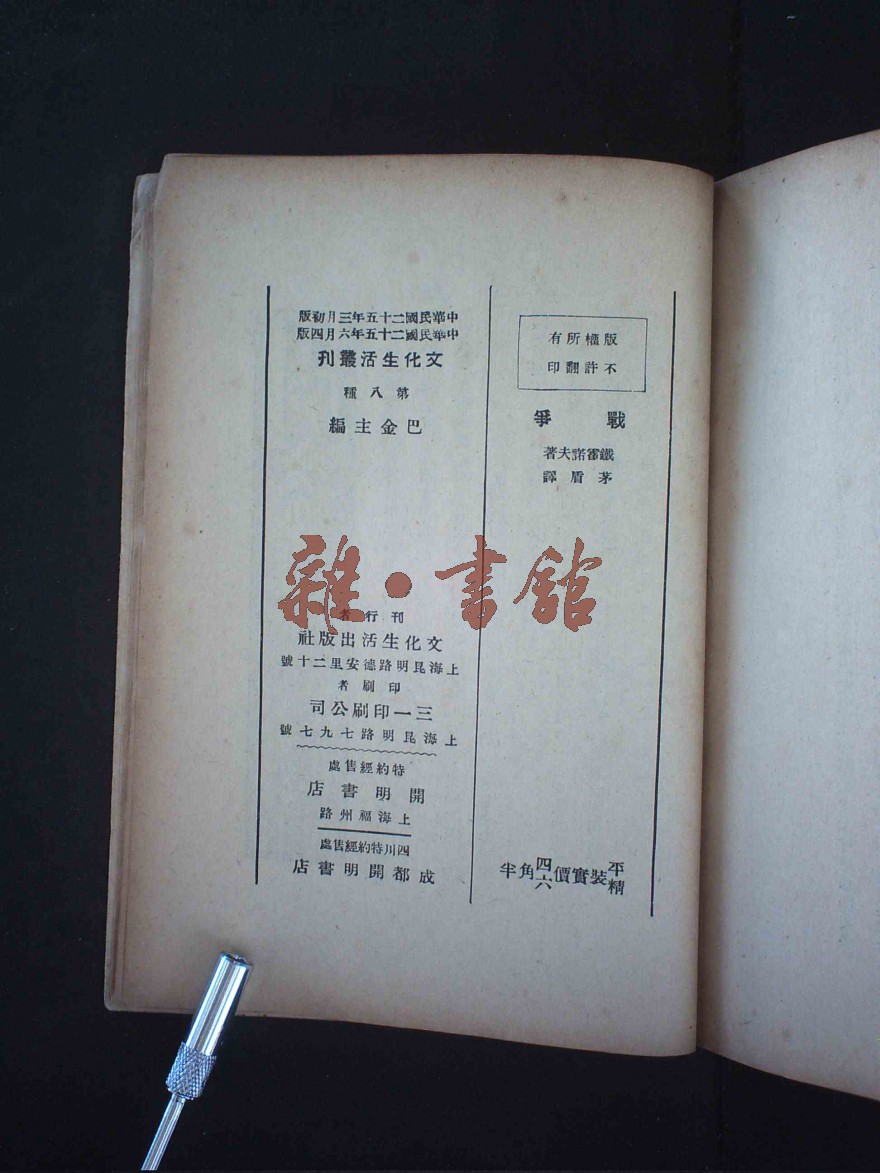 版權所有
不許翻印
戰爭
鐵霍諾夫著
茅盾譯
平精裝實價四六角半
中華民國二十五年三月初版
中華民國二十五年六月四版
文化生活叢刊
第八種
巴金主編
刊行者
文化生活出版社
上海昆明路德安里二十號
印刷者
三一印刷公司
上海昆明路七九七號
特約經售處
開明書店
上海福州路
四川特約經售處
成都開明書店
雜·書館